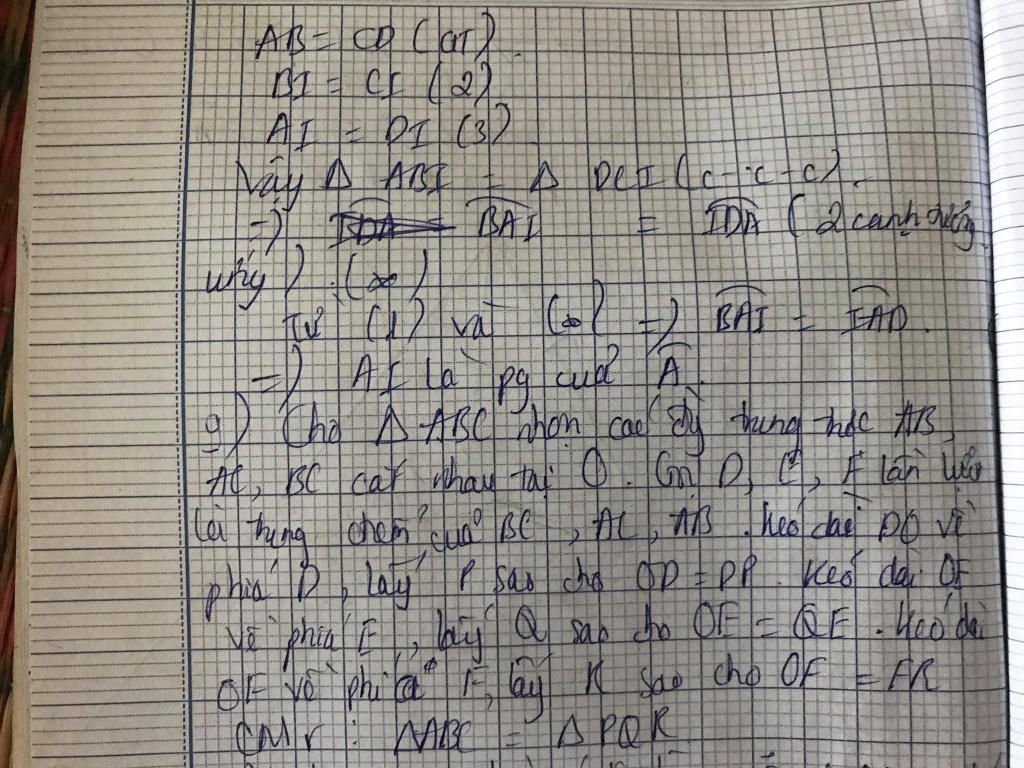 AB = CD (GT).
BI = CI (2)
AI = DI (3)
Vậy Δ ABI = Δ DCI (c-c-c).
=) BAI = IDA (2 cạnh tương
ứng). (∞)
Từ (1) và (∞) =) BAI = IAD.
=) AI là pg của A.
9) Cho Δ ABC nhọn các đg trung trực AB,
AC, BC cắt nhau tại O. Gọi D, E, F lần lượt
là trung điểm của BC, AC, AB. Kéo dài DO về
phía D, lấy P sao cho OD = DP. Kéo dài OF
về phía E, lấy Q sao cho OE = QE. Kéo dài
OF về phía F, lấy R sao cho OF = FR
CMr: ΔABC = Δ PQR